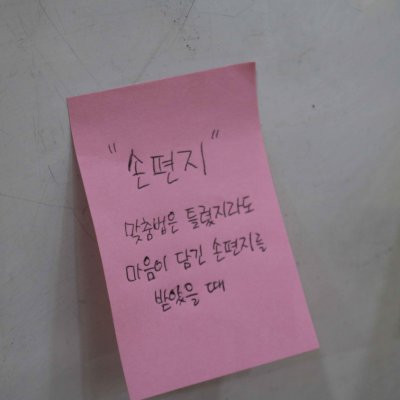 "손편지"
맞춤법은 틀렸지라도
마음이 담긴 손편지를
받았을 때